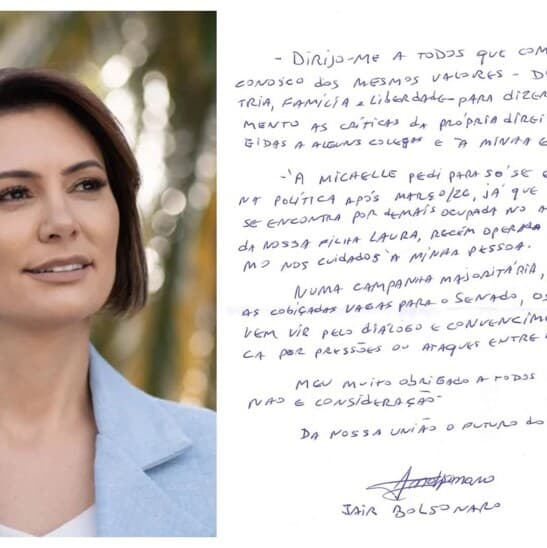 - DIRIJO-ME A TODOS QUE COM
CONOSCO DOS MESMOS VALORES - D
TRIA, FAMÍLIA E LIBERDADE - PARA DIZER
MENTO AS CRÍTICAS DA PRÓPRIA DIREI
GIDAS A ALGUNS COLEGAS E À MINHA E
- 'A MICHELLE PEDI PARA SÓ SE E
NA POLÍTICA APÓS MARÇO/26, JÁ QUE
SE ENCONTRA POR DEMAIS OCUPADA NO A
DA NOSSA FILHA LAURA, RECÉM OPERADA
MO NOS CUIDADOS À MINHA PESSOA.
NUMA CAMPANHA MAJORITÁRIA,
AS COBIÇADAS VAGAS PARA O SENADO, OS
VEM VIR PELO DIÁLOGO E CONVENCIME
CA POR PRESSÕES OU ATAQUES ENTRE
MEU MUITO OBRIGADO A TODOS
NHO E CONSIDERAÇÃO-
DA NOSSA UNIÃO O FUTURO DO
JAIR BOLSONARO